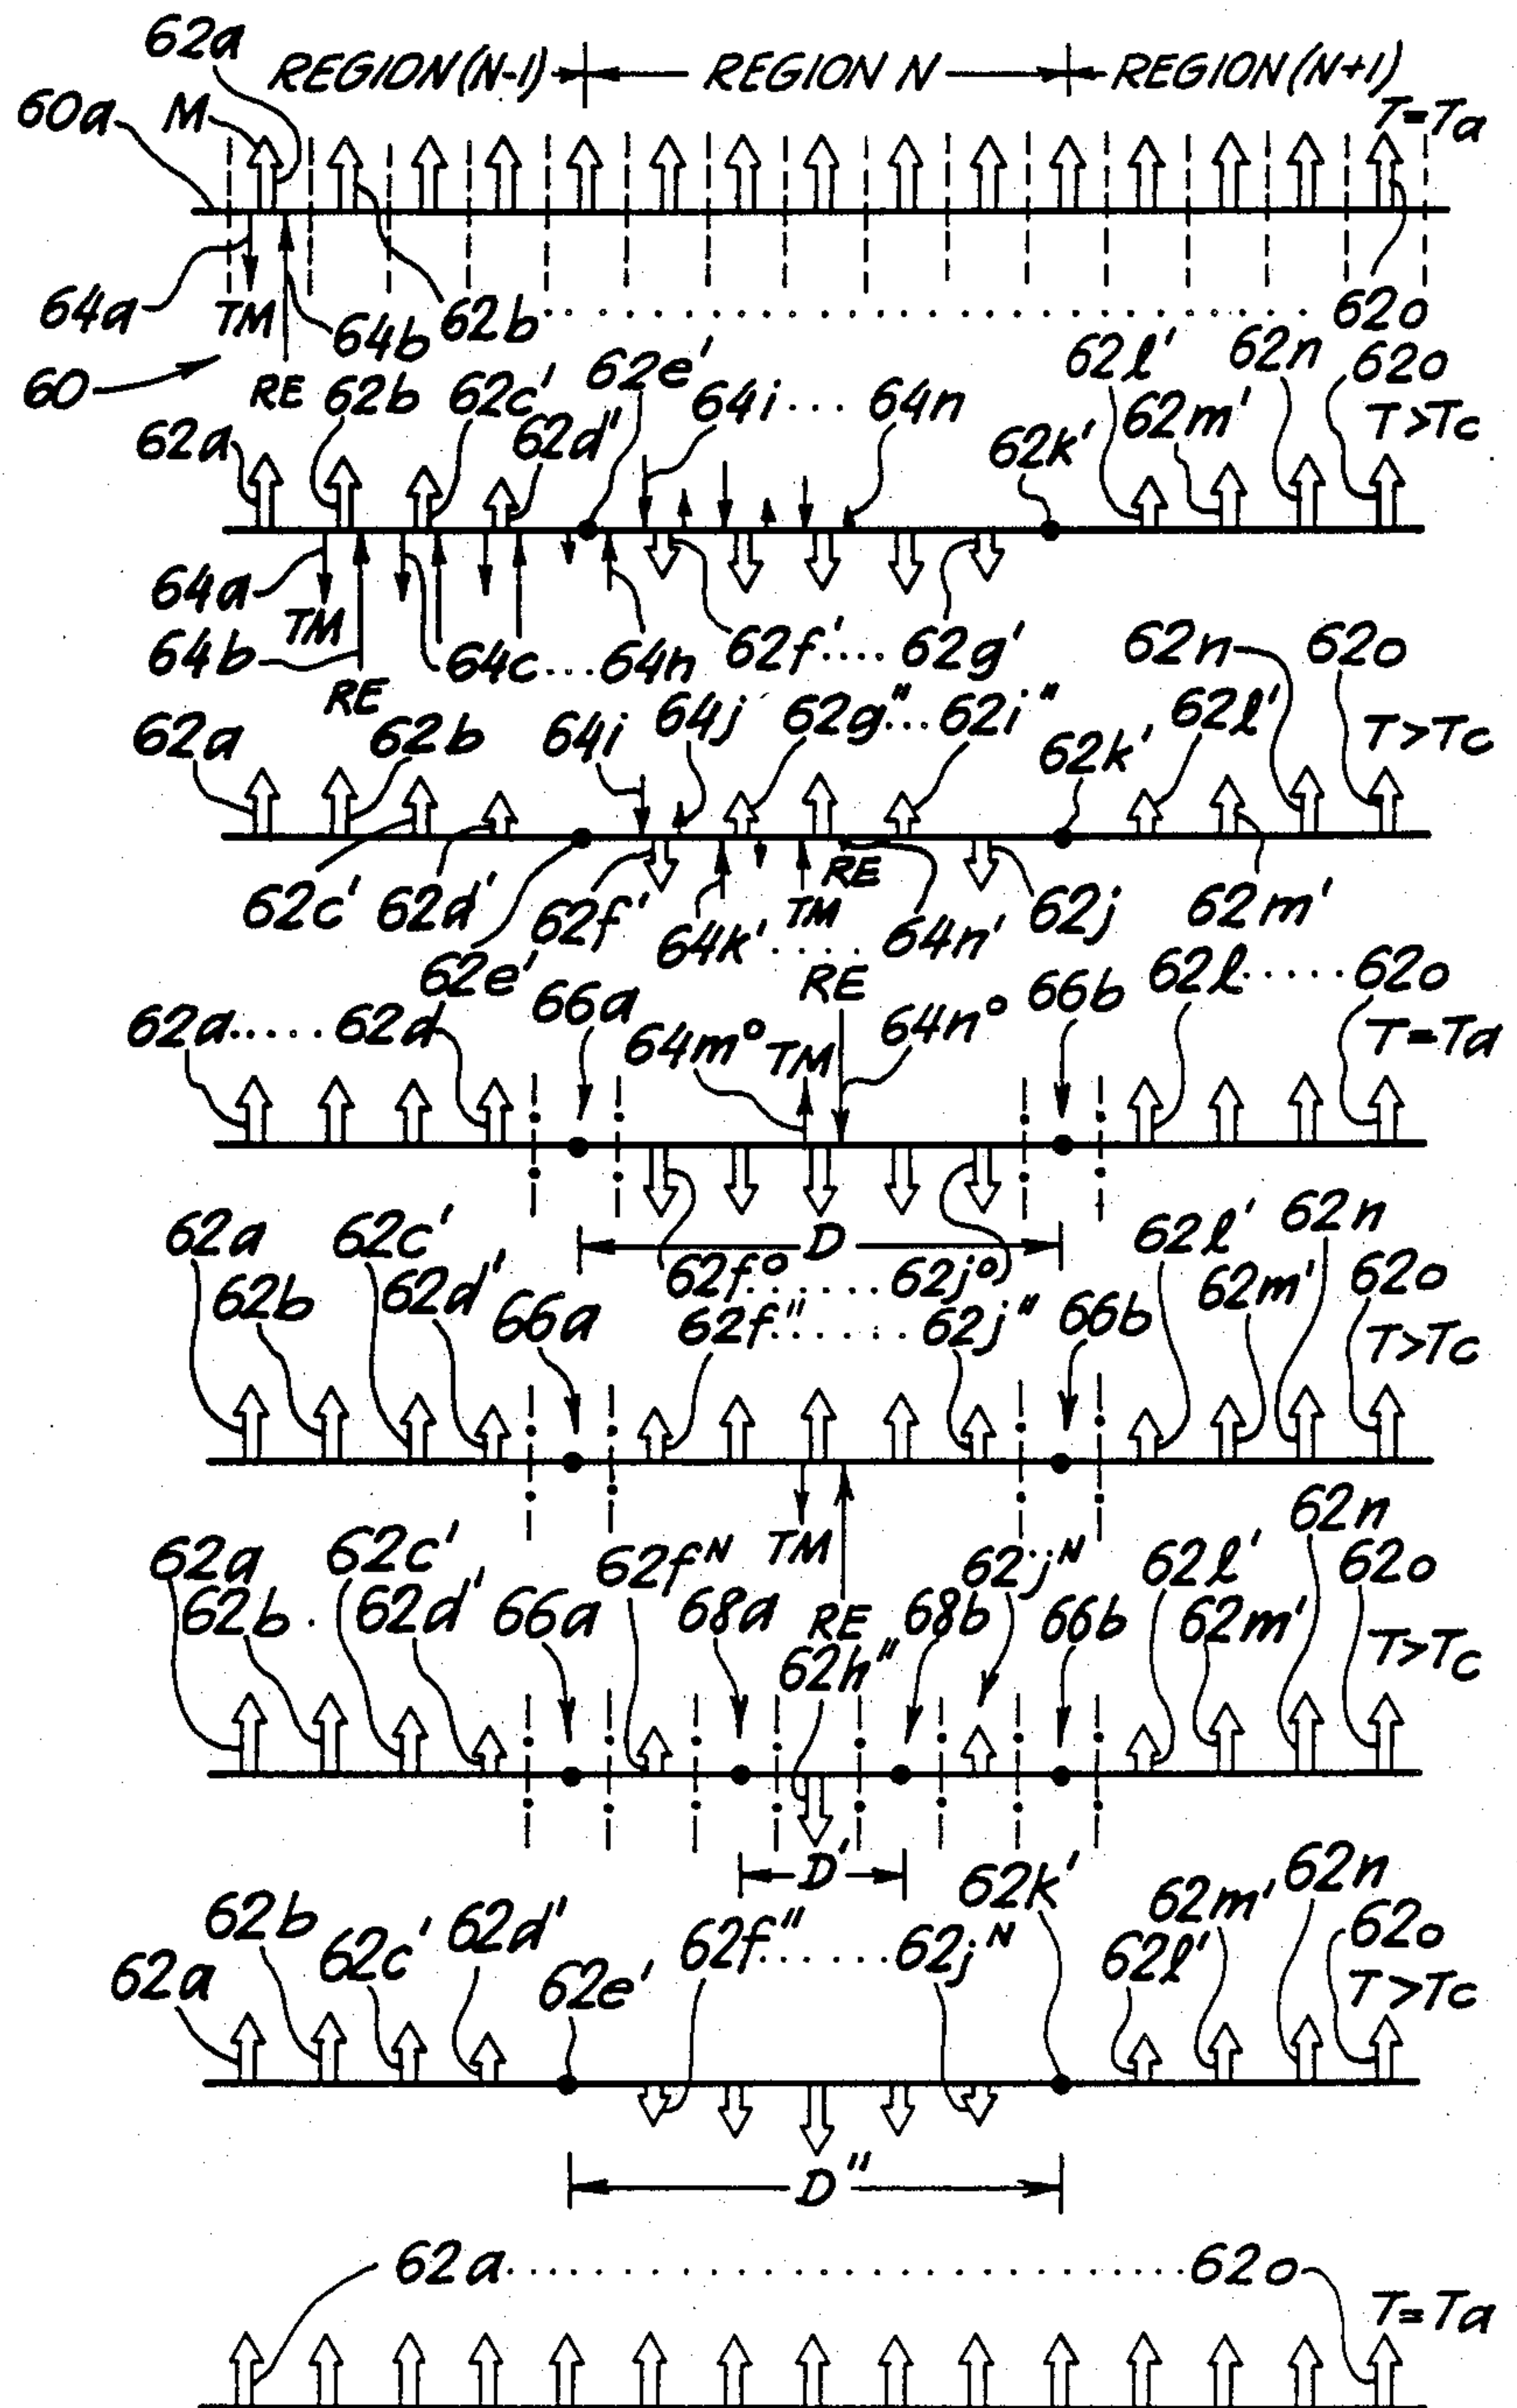 62a
REGION(N-1) REGION N REGION(N+1)
60a M T=Ta
64a TM 64b 62b 62o
60 RE 62b 62c' 62e' 64i ... 64n 62l' 62n 62o
62a 62d' 62k' 62m' T>Tc
64a TM
64b RE 64c...64n 62f'.... 62g' 62n 62o
62a 62b 64i 64j 62g"...62i" 62k' 62l' T>Tc
62c' 62d' 62f' RE 62j 62m'
62e' 64k' TM .... 64n'
62a.....62d 66a RE 66b 62l.....62o
64m° TM 64n° T=Ta
D
62a 62c' 62f°.......62j° 62l' 62n
62b 62d' 66a 62f".......62j" 66b 62m' 62o
T>Tc
TM 62n
62a 62c' 62fᴺ 62jᴺ 62l' 62o
62b 62d' 66a 68a RE 68b 66b 62m'
62h" T>Tc
D'
62b 62k' 62n
62a 62c' 62d' 62e' 62f".......62jᴺ 62l' 62m' 62o
T>Tc
D"
62a..............................62o
T=Ta